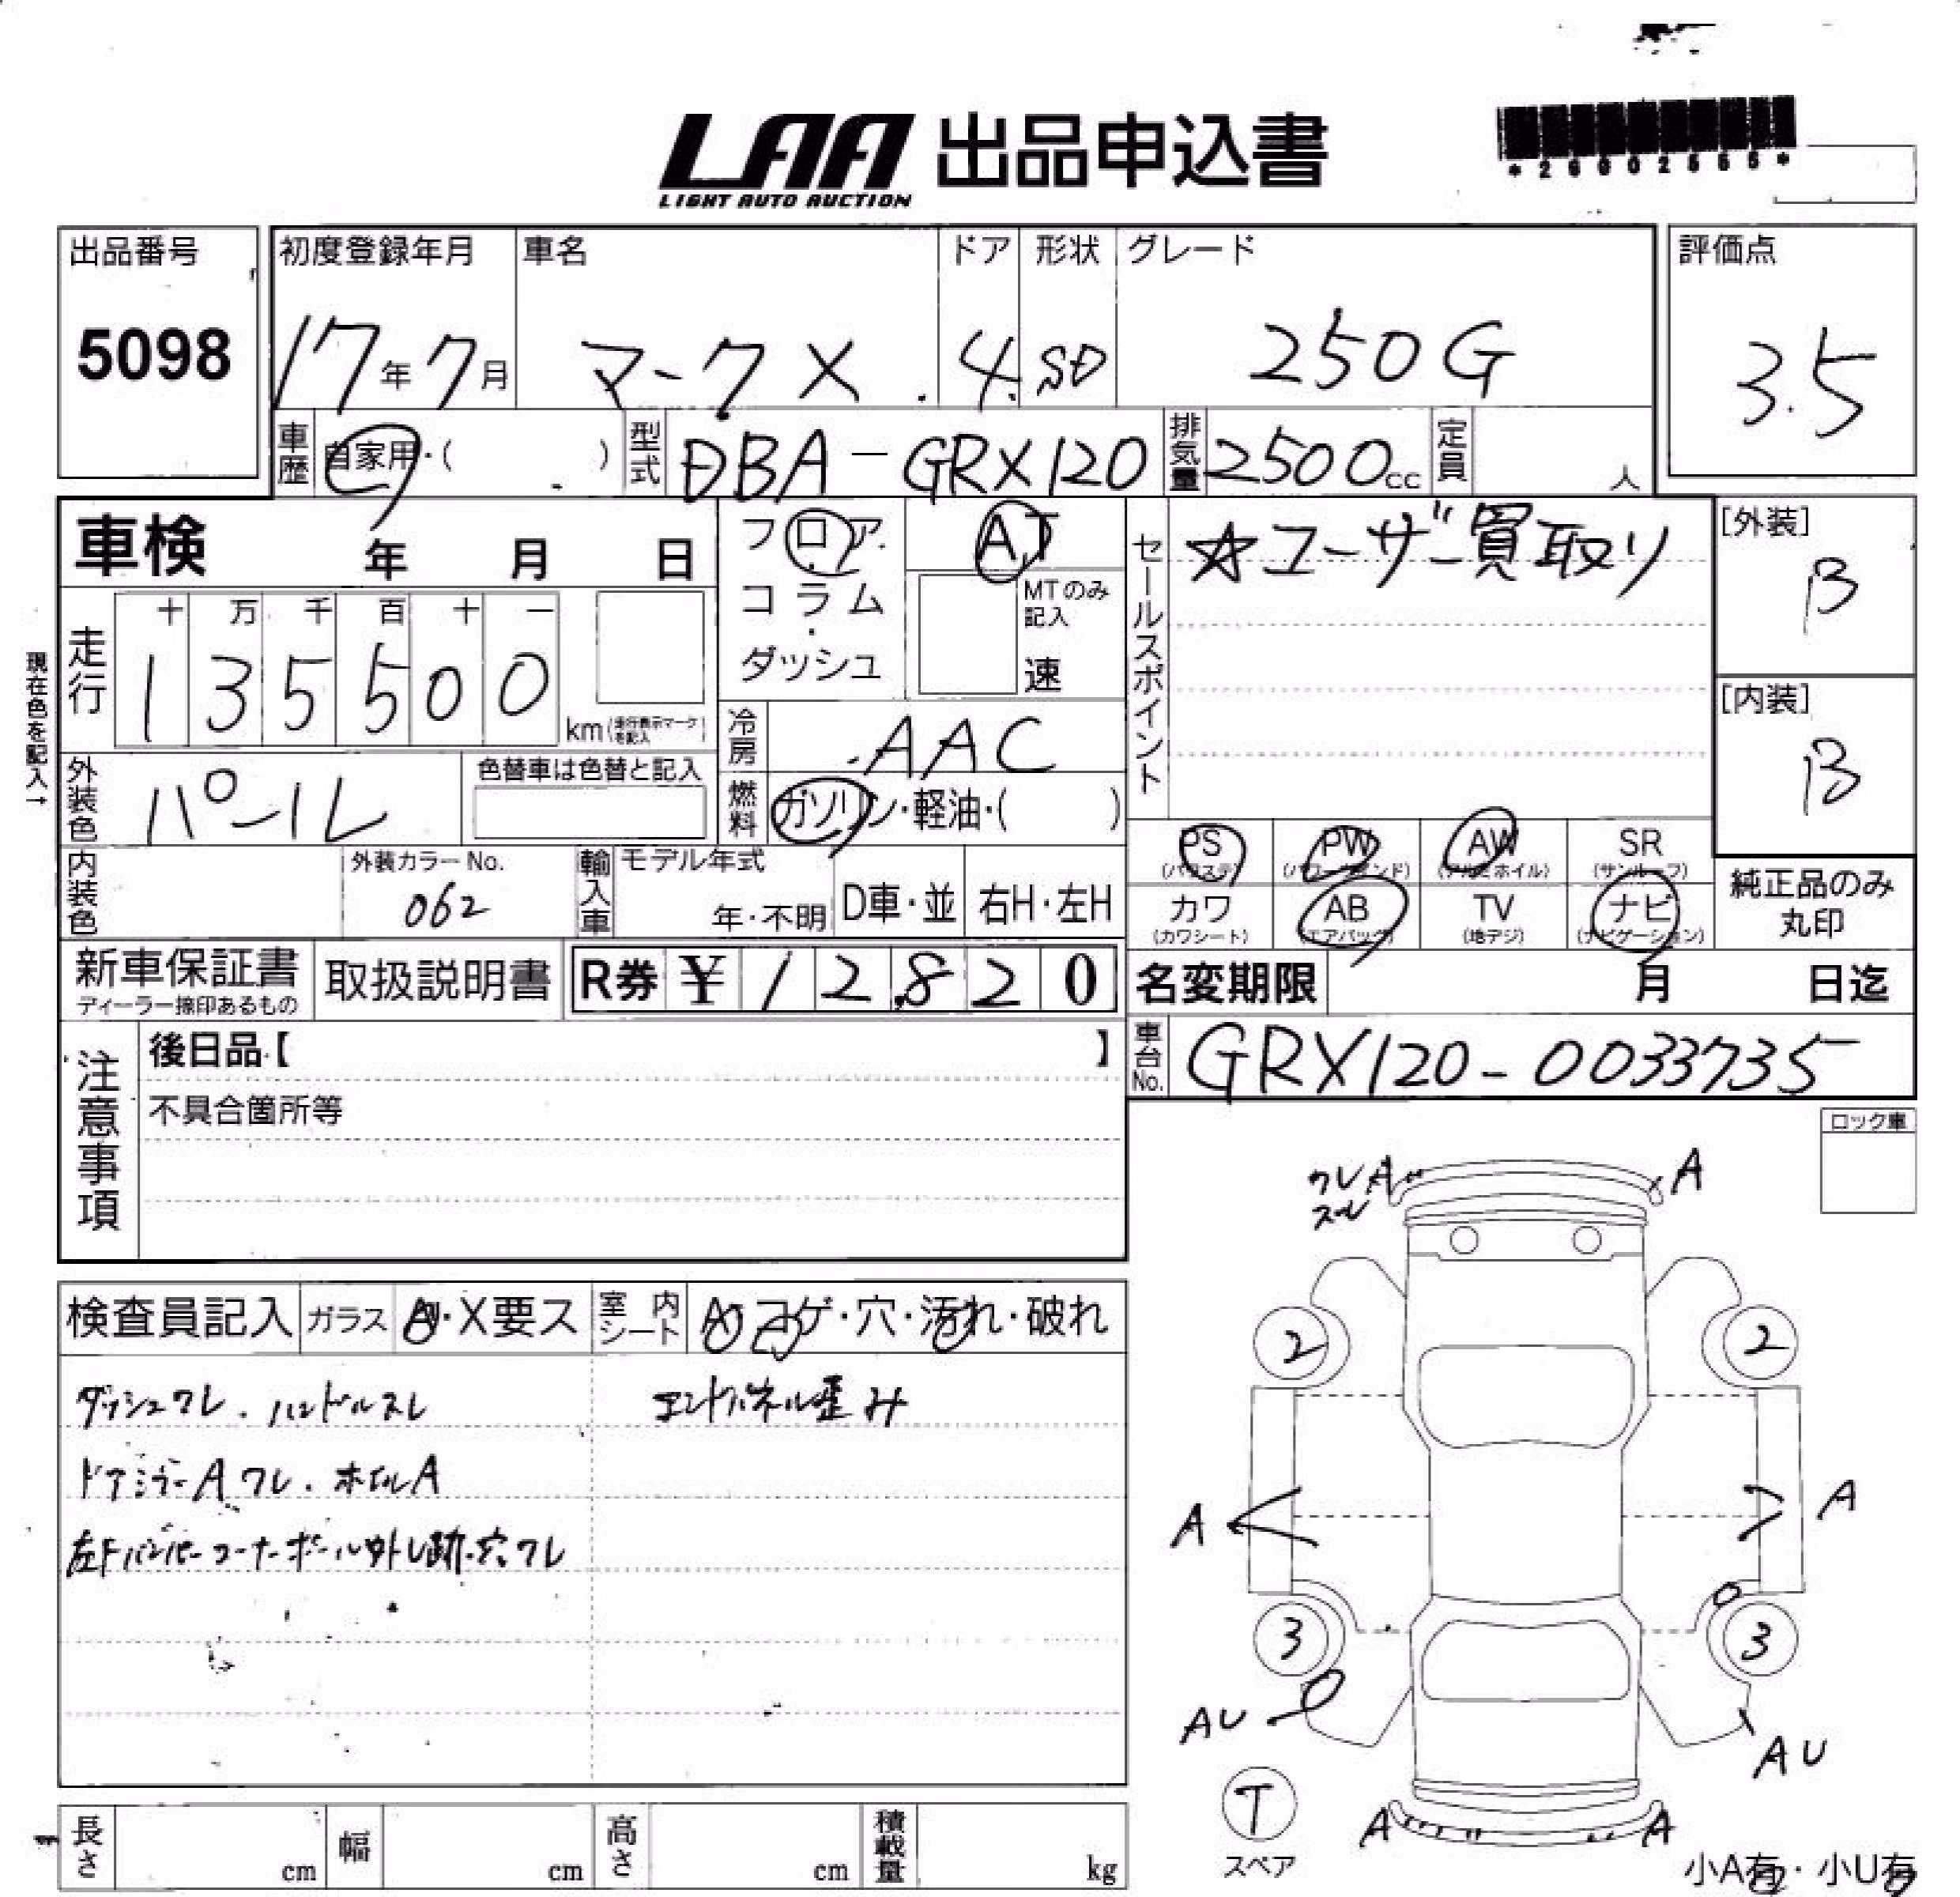 LAA 出品申込書
LIGHT AUTO AUCTION
*26002555*
出品番号
5098
初度登録年月
17年7月
車名
マークX
ドア
4
形状
SD
グレード
250G
評価点
3.5
車歴
自家用・( )
型式
DBA-GRX120
排気量
2500cc
定員
人
車検 年 月 日
フロア
・
コラム
・
ダッシュ
AT
MTのみ
記入
速
セールスポイント
☆ユーザー買取り
[外装]
B
[内装]
B
現在色を記入→
走行
十 万 千 百 十 一
1 3 5 5 0 0
km(走行表示マークを記入)
冷房
AAC
外装色
パール
色替車は色替と記入
燃料
ガソリン・軽油・( )
PS
(パワステ)
PW
(パワーウインド)
AW
(アルミホイル)
SR
(サンルーフ)
カワ
(カワシート)
AB
(エアバッグ)
TV
(地デジ)
ナビ
(ナビゲーション)
純正品のみ
丸印
内装色
外装カラーNo.
062
輸入車
モデル年式
年・不明
D車・並
右H・左H
新車保証書
ディーラー捺印あるもの
取扱説明書
R券 ¥12,820
名変期限 月 日迄
車台No.
GRX120-0033735
注意事項
後日品【 】
不具合箇所等
ロック車
検査員記入
ガラス
A・X要ス
室内シート
A・コゲ・穴・汚れ・破れ
ダッシュワレ.ハンドルスレ
エンドパネル歪み
ドアミラーAワレ.ホイルA
左Fバンパーコーナーポール外し跡.穴.ワレ
ワレA
スレ
A
2
2
A
A
3
3
AU
AU
T
スペア
A
A
小A有・小U有
長さ cm
幅 cm
高さ cm
積載量 kg